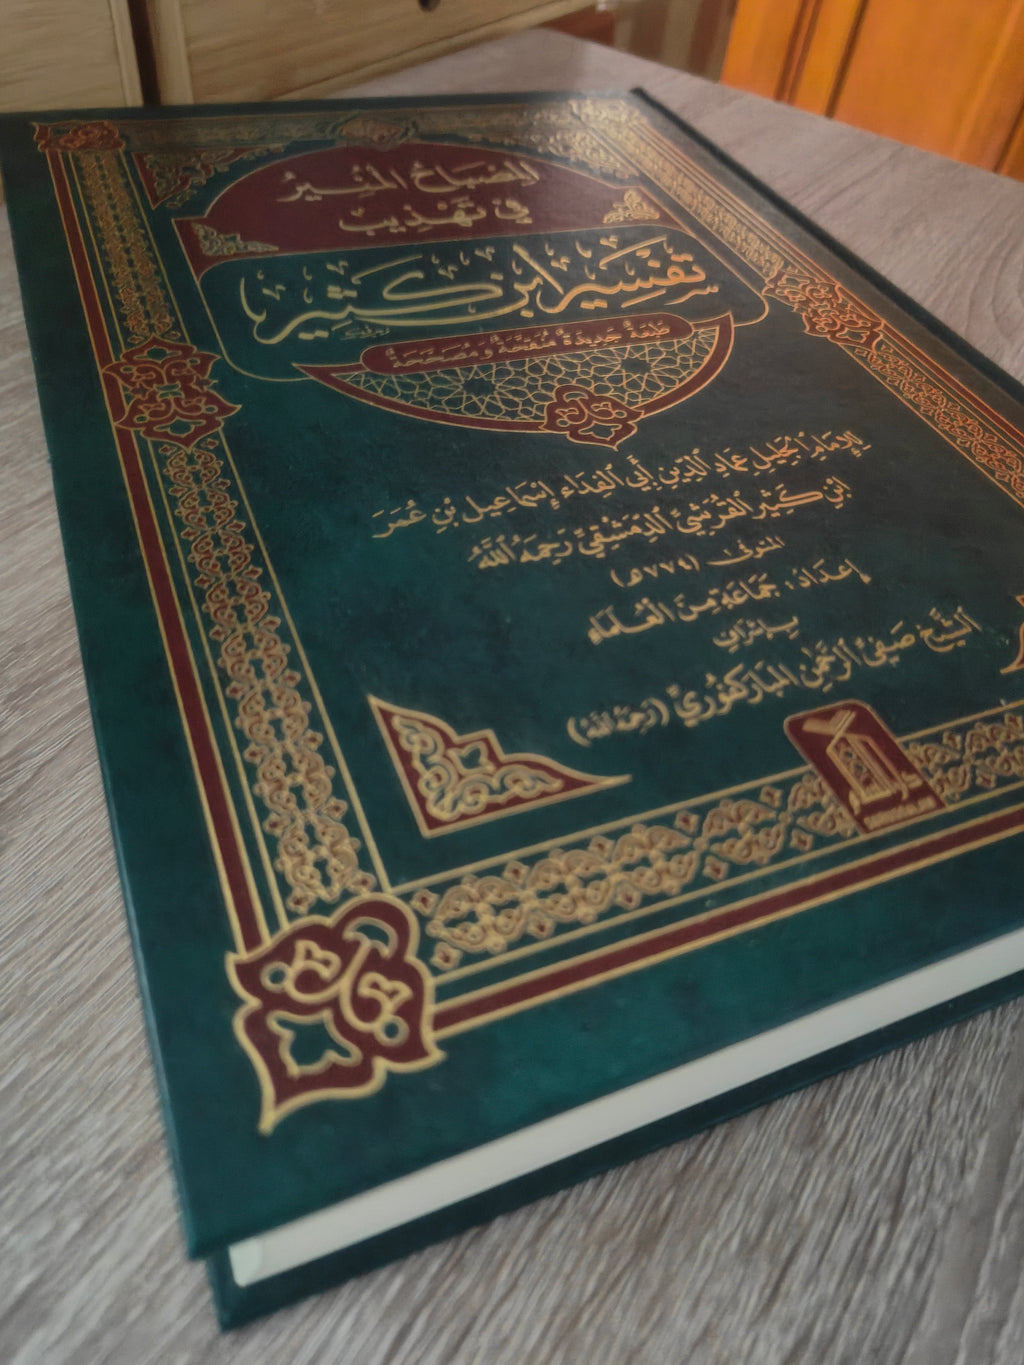 المِصْبَاحُ المُنِيْرُ
فِي تَهْذِيْبِ
تَفْسِيْرِ ابْنِ كَثِيْرٍ
طَبْعَةٌ جَدِيْدَةٌ مُنَقَّحَةٌ وَمُصَحَّحَةٌ
لِلإِمَامِ الجَلِيْلِ عِمَادِ الدِّيْنِ أَبِي الفِدَاءِ إِسْمَاعِيْلَ بْنِ عُمَرَ
ابْنِ كَثِيْرٍ القُرَشِيِّ الدِّمَشْقِيِّ رَحِمَهُ اللَّهُ
المتوفى (٧٧٤هـ)
إعدَادُ: جَمَاعَةٍ مِنَ العُلَمَاءِ
بإشراف
الشَّيْخِ صَفِيِّ الرَّحْمٰنِ المُبَارَكْفُوْرِيِّ (رَحِمَهُ اللَّهُ)
دار السلام